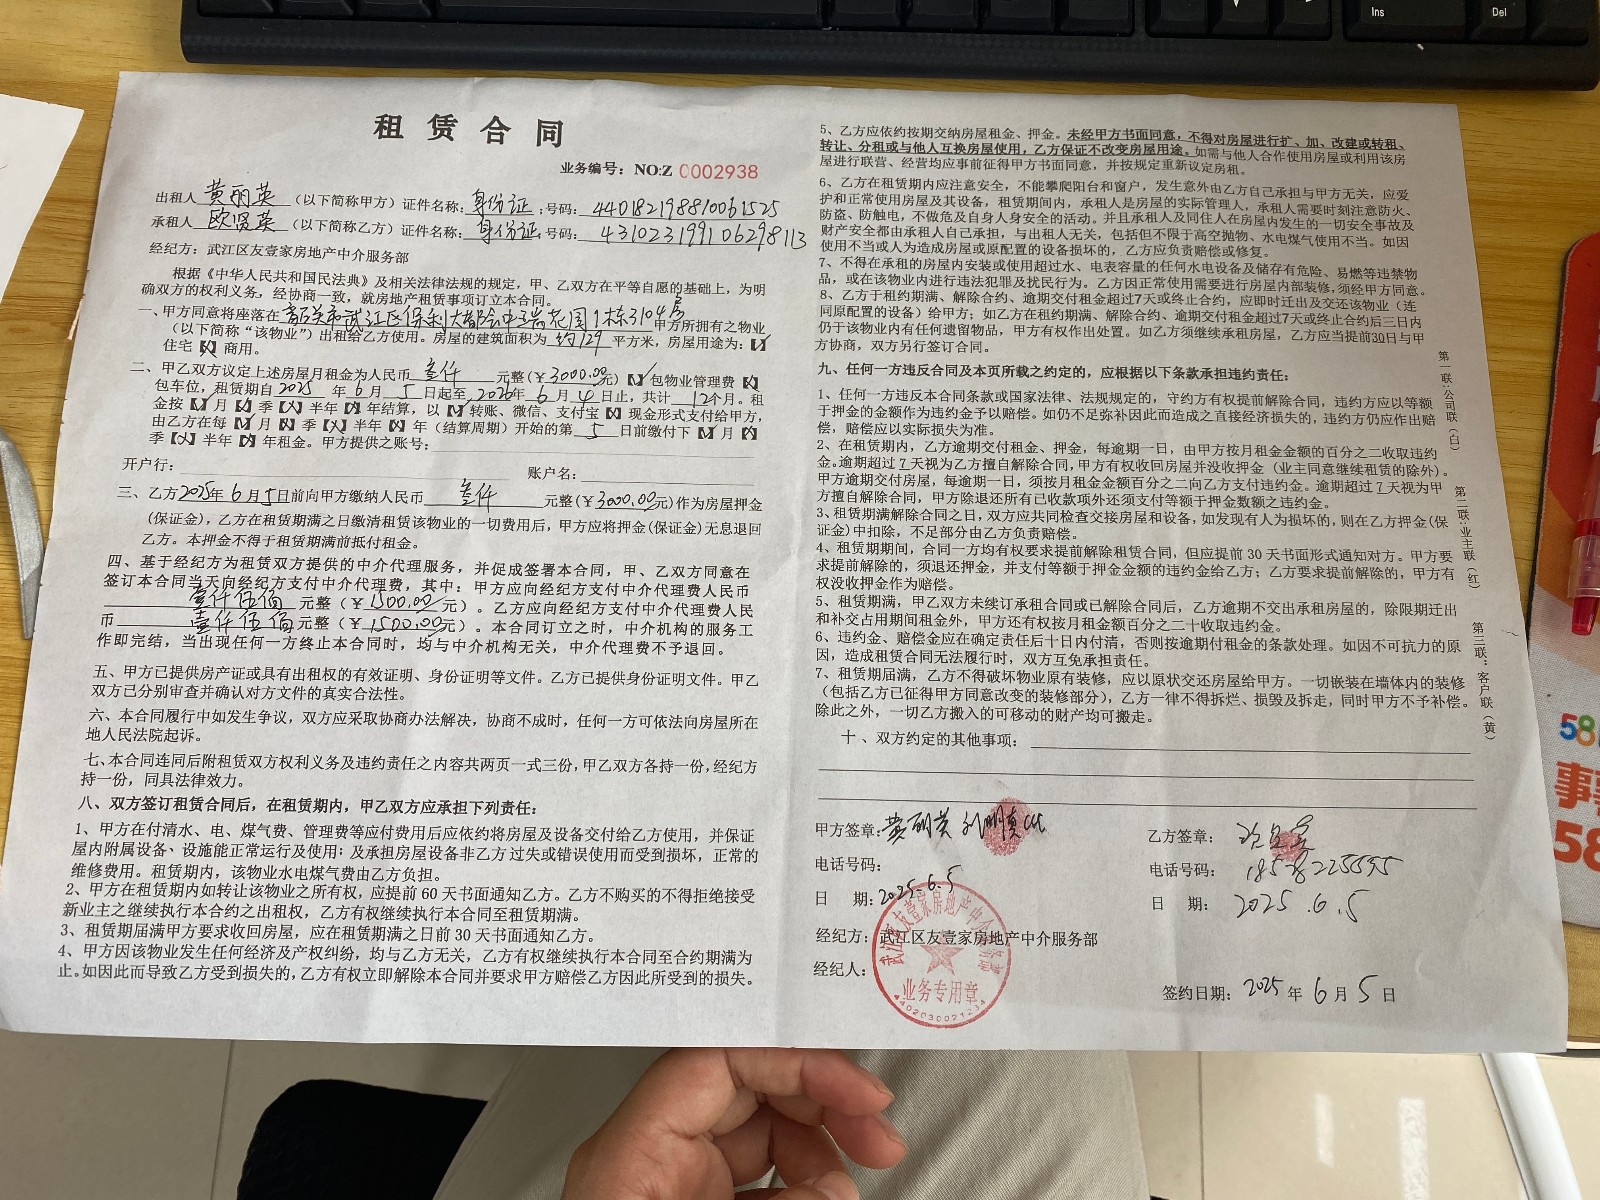 租赁合同
业务编号：NO:Z 0002938
出租人 黄丽英 （以下简称甲方）证件名称：身份证；号码：440182198810061525
承租人 欧贤英 （以下简称乙方）证件名称：身份证；号码：431023199106298113
经纪方：武江区友壹家房地产中介服务部
根据《中华人民共和国民法典》及相关法律法规的规定，甲、乙双方在平等自愿的基础上，为明
确双方的权利义务，经协商一致，就房地产租赁事项订立本合同。
一、甲方同意将座落在 韶关市武江区保利大都会中 花园1栋3104房 甲方所拥有之物业
（以下简称“该物业”）出租给乙方使用。房屋的建筑面积为 约129 平方米，房屋用途为：【√】
住宅【X】商用。
二、甲乙双方议定上述房屋月租金为人民币 叁仟 元整（￥3000.00元）【√】包物业管理费【X】
包车位，租赁期自 2025 年 6 月 5 日起至 2026年 6 月 4 日止，共计 12个月。租
金按【√】月【X】季【X】半年【X】年结算，以【√】转账、微信、支付宝【X】现金形式支付给甲方，
由乙方在每【√】月【X】季【X】半年【X】年（结算周期）开始的第 5 日前缴付下【√】月【X】
季【X】半年【X】年租金。甲方提供之账号：
开户行： 账户名：
三、乙方2025年6月5日前向甲方缴纳人民币 叁仟 元整（￥3000.00元）作为房屋押金
(保证金)，乙方在租赁期满之日缴清租赁该物业的一切费用后，甲方应将押金(保证金)无息退回
乙方。本押金不得于租赁期满前抵付租金。
四、基于经纪方为租赁双方提供的中介代理服务，并促成签署本合同，甲、乙双方同意在
签订本合同当天向经纪方支付中介代理费，其中：甲方应向经纪方支付中介代理费人民币
壹仟伍佰 元整（￥1500.00元）。乙方应向经纪方支付中介代理费人民
币 壹仟伍佰 元整（￥1500.00元）。本合同订立之时，中介机构的服务工
作即完结，当出现任何一方终止本合同时，均与中介机构无关，中介代理费不予退回。
五、甲方已提供房产证或具有出租权的有效证明、身份证明等文件。乙方已提供身份证明文件。甲乙
双方已分别审查并确认对方文件的真实合法性。
六、本合同履行中如发生争议，双方应采取协商办法解决，协商不成时，任何一方可依法向房屋所在
地人民法院起诉。
七、本合同连同后附租赁双方权利义务及违约责任之内容共两页一式三份，甲乙双方各持一份，经纪方
持一份，同具法律效力。
八、双方签订租赁合同后，在租赁期内，甲乙双方应承担下列责任：
1、甲方在付清水、电、煤气费、管理费等应付费用后应依约将房屋及设备交付给乙方使用，并保证
屋内附属设备、设施能正常运行及使用；及承担房屋设备非乙方过失或错误使用而受到损坏，正常的
维修费用。租赁期内，该物业水电煤气费由乙方负担。
2、甲方在租赁期内如转让该物业之所有权，应提前60天书面通知乙方。乙方不购买的不得拒绝接受
新业主之继续执行本合约之出租权，乙方有权继续执行本合同至租赁期满。
3、租赁期届满甲方要求收回房屋，应在租赁期满之日前30天书面通知乙方。
4、甲方因该物业发生任何经济及产权纠纷，均与乙方无关，乙方有权继续执行本合同至合约期满为
止。如因此而导致乙方受到损失的，乙方有权立即解除本合同并要求甲方赔偿乙方因此所受到的损失。
5、乙方应依约按期交纳房屋租金、押金。未经甲方书面同意，不得对房屋进行扩、加、改建或转租、
转让、分租或与他人互换房屋使用，乙方保证不改变房屋用途。如需与他人合作使用房屋或利用该房
屋进行联营、经营均应事前征得甲方书面同意，并按规定重新议定房租。
6、乙方在租赁期内应注意安全，不能攀爬阳台和窗户，发生意外由乙方自己承担与甲方无关，应爱
护和正常使用房屋及其设备，租赁期间内，承租人是房屋的实际管理人，承租人需要时刻注意防火、
防盗、防触电，不做危及自身人身安全的活动。并且承租人及同住人在房屋内发生的一切安全事故及
财产安全都由承租人自己承担，与出租人无关，包括但不限于高空抛物、水电煤气使用不当。如因
使用不当或人为造成房屋或原配置的设备损坏的，乙方应负责赔偿或修复。
7、不得在承租的房屋内安装或使用超过水、电表容量的任何水电设备及储存有危险、易燃等违禁物
品，或在该物业内进行违法犯罪及扰民行为。乙方因正常使用需要进行房屋内部装修，须经甲方同意。
8、乙方于租约期满、解除合约、逾期交付租金超过7天或终止合约，应即时迁出及交还该物业（连
同原配置的设备）给甲方；如乙方在租约期满、解除合约、逾期交付租金超过7天或终止合约后三日内
仍于该物业内有任何遗留物品，甲方有权作出处置。如乙方须继续承租房屋，乙方应当提前30日与甲
方协商，双方另行签订合同。
九、任何一方违反合同及本页所载之约定的，应根据以下条款承担违约责任：
1、任何一方违反本合同条款或国家法律、法规规定的，守约方有权提前解除合同，违约方应以等额
于押金的金额作为违约金予以赔偿。如仍不足弥补因此而造成之直接经济损失的，违约方仍应作出赔
偿，赔偿应以实际损失为准。
2、在租赁期内，乙方逾期交付租金、押金，每逾期一日，由甲方按月租金金额的百分之二收取违约
金。逾期超过7天视为乙方擅自解除合同，甲方有权收回房屋并没收押金（业主同意继续租赁的除外）。
甲方逾期交付房屋，每逾期一日，须按月租金金额百分之二向乙方支付违约金。逾期超过7天视为甲
方擅自解除合同，甲方除退还所有已收款项外还须支付等额于押金数额之违约金。
3、租赁期满解除合同之日，双方应共同检查交接房屋和设备，如发现有人为损坏的，则在乙方押金(保
证金)中扣除，不足部分由乙方负责赔偿。
4、租赁期期间，合同一方均有权要求提前解除租赁合同，但应提前30天书面形式通知对方。甲方要
求提前解除的，须退还押金，并支付等额于押金金额的违约金给乙方；乙方要求提前解除的，甲方有
权没收押金作为赔偿。
5、租赁期满，甲乙双方未续订承租合同或已解除合同后，乙方逾期不交出承租房屋的，除限期迁出
和补交占用期间租金外，甲方还有权按月租金金额百分之二十收取违约金。
6、违约金、赔偿金应在确定责任后十日内付清，否则按逾期付租金的条款处理。如因不可抗力的原
因，造成租赁合同无法履行时，双方互免承担责任。
7、租赁届满，乙方不得破坏物业原有装修，应以原状交还房屋给甲方。一切嵌装在墙体内的装修
（包括乙方已征得甲方同意改变的装修部分），乙方一律不得拆烂、损毁及拆走，同时甲方不予补偿。
除此之外，一切乙方搬入的可移动的财产均可搬走。
十、双方约定的其他事项：
甲方签章：黄丽英
电话号码：
日 期：2025.6.5
经纪方：武江区友壹家房地产中介服务部
经纪人：
业务专用章
乙方签章：
电话号码：
日 期：2025.6.5
签约日期：2025 年 6 月 5 日
第一联：公司联（白）
第二联：业主联（红）
第三联：客户联（黄）
Ins
Del
58
58